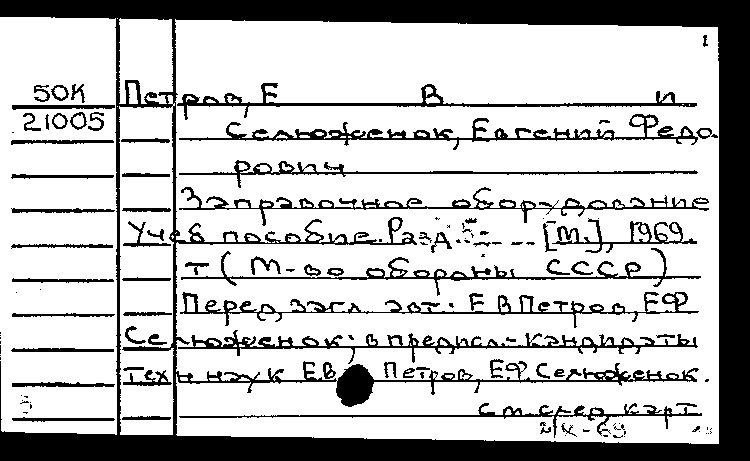 1
50К Петров, Е В и
21005 Селюженок, Евгений Федо
рович
Заправочное оборудование
Учеб пособие. Разд. 5- [М.], 1969.
т (М-во обороны СССР)
Перед загл. авт: Е В Петров, Е.Ф.
Селюженок; в предисл.- кандидаты
техн наук Е.В. Петров, Е.Ф. Селюженок.
См. след. карт
IX-69